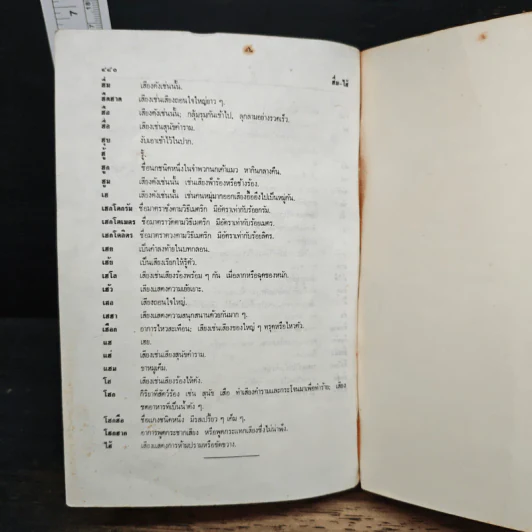 ฮื่ม-ไฮ้
ฮื่ม เสียงดังเช่นนั้น.
ฮืดฮาด เสียงเช่นเสียงถอนใจใหญ่ยาว ๆ.
ฮือ เสียงดังเช่นนั้น; กลุ้มรุมกันเข้าไป, ลุกลามอย่างรวดเร็ว.
ฮื่อ เสียงเช่นสุนัขคำราม.
ฮุบ งับเอาเข้าไว้ในปาก.
ฮู้ รู้.
ฮูก ชื่อนกชนิดหนึ่งในจำพวกนกเค้าแมว หากินกลางคืน.
ฮูม เสียงดังเช่นนั้น เช่นเสียงฟ้าร้องหรือช้างร้อง.
เฮ เสียงดังเช่นนั้น เช่นคนหมู่มากออกเสียงอื้ออึงไปเป็นหมู่กัน.
เฮกโตกรัม ชื่อมาตราชั่งตามวิธีเมตริก มีอัตราเท่ากับร้อยกรัม.
เฮกโตเมตร ชื่อมาตราวัดตามวิธีเมตริก มีอัตราเท่ากับร้อยเมตร.
เฮกโตลิตร ชื่อมาตราตวงตามวิธีเมตริก มีอัตราเท่ากับร้อยลิตร.
เฮย เป็นคำลงท้ายในบทกลอน.
เฮ้ย เป็นเสียงเรียกให้รู้ตัว.
เฮโล เสียงเช่นเสียงร้องพร้อม ๆ กัน เมื่อลากหรือฉุดของหนัก.
เฮ้ว เสียงแสดงความเย้ยเยาะ.
เฮอ เสียงถอนใจใหญ่.
เฮฮา เสียงแสดงความสนุกสนานด้วยกันมาก ๆ.
เฮือก อาการไหวสะเทือน; เสียงเช่นเสียงของใหญ่ ๆ ทรุดหรือไหวตัว.
แฮ เฮย.
แฮ่ เสียงเช่นเสียงสุนัขคำราม.
แฮม ขาหมูเค็ม.
โฮ เสียงเช่นเสียงร้องไห้ดัง.
โฮก กิริยาที่สัตว์ร้อง เช่น สุนัข เสือ ทำเสียงคำรามและกระโจนมาเพื่อทำร้าย, เสียง
ซดอาหารที่เป็นน้ำดัง ๆ.
โฮกฮือ ชื่อแกงชนิดหนึ่ง มีรสเปรี้ยว ๆ เค็ม ๆ.
โฮกฮาก อาการพูดกระชากเสียง หรือพูดกระแทกเสียงซึ่งไม่น่าฟัง.
ไฮ้ เสียงแสดงการห้ามปรามหรือขัดขวาง.